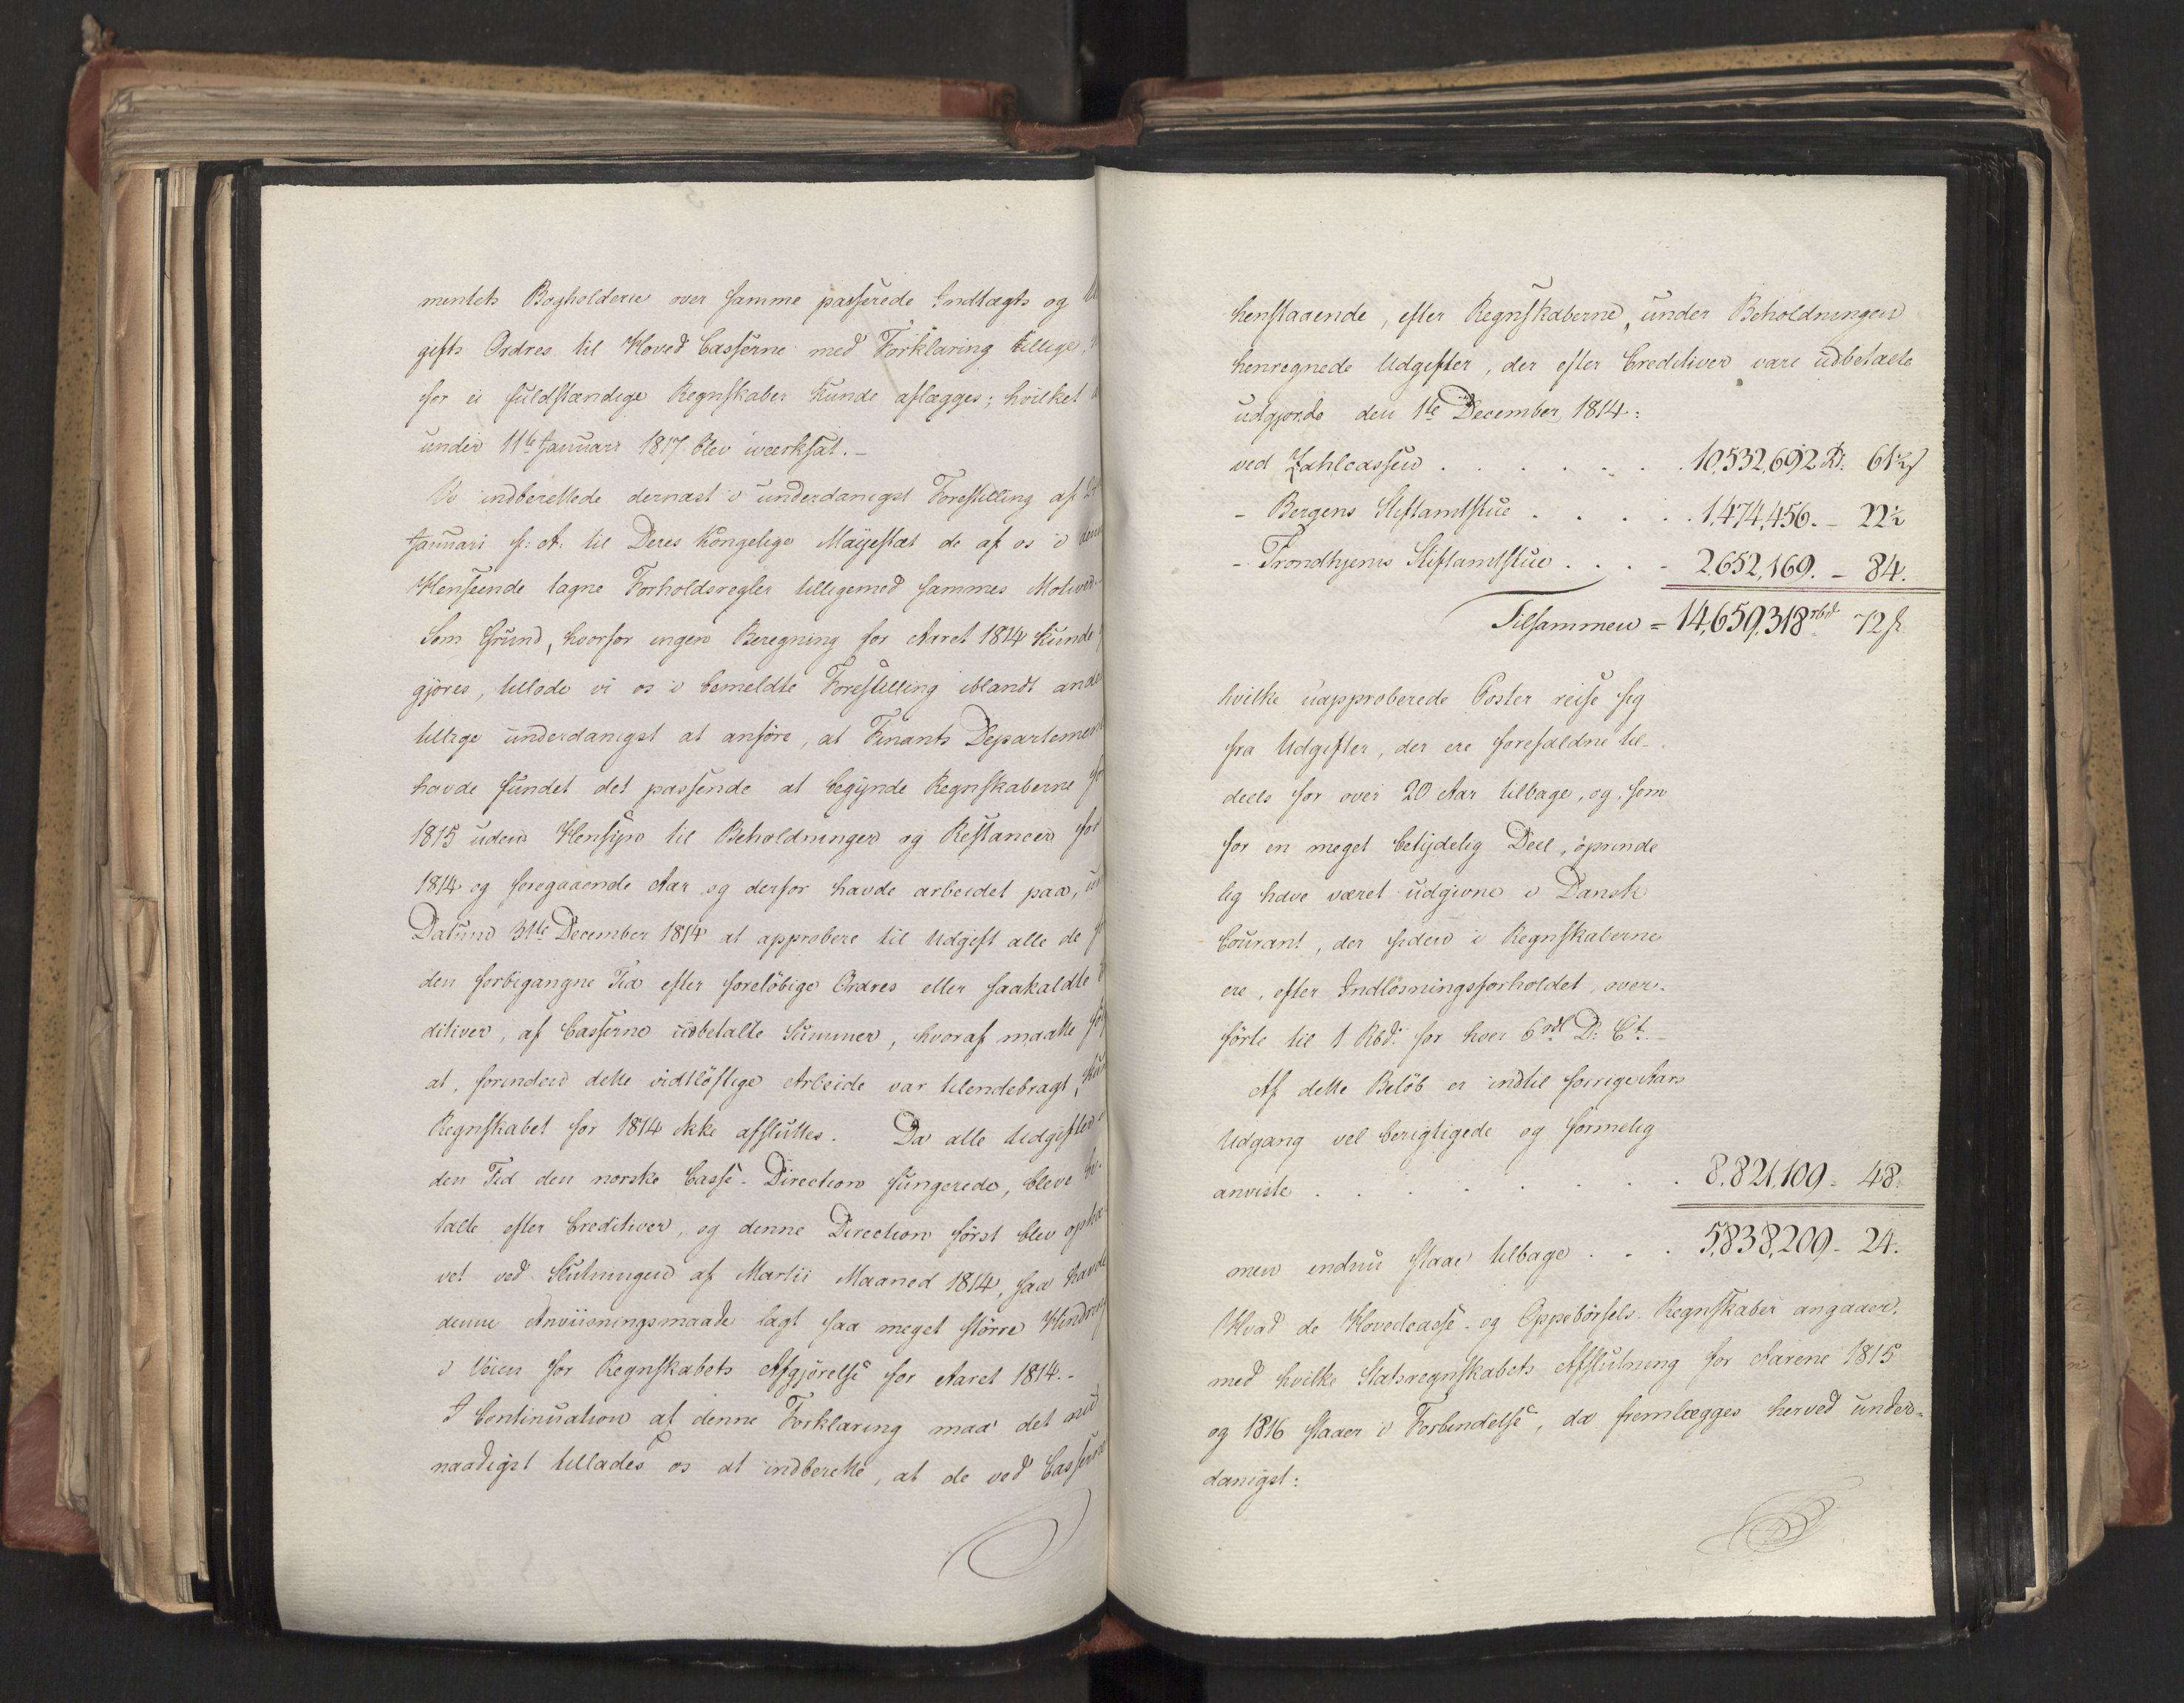 mentets Bogholderie over samme passerede Indtægts og
gifts Ordres til Hoved Casserne med Forklaring tillige,
for ei fuldstændige Regnskaber kunde aflægges; hvilket
under 11te Januari 1817 blev iværksat.-
Vi indberettede dernæst i underdanigst Forestilling af
Januari f: A: til Deres Kongelige Mayestæt de af os i
Henseende tagne Forholdsregler tilligemed sammes Motiver.
Som Grund, hvorfor ingen Beregning for Aaret 1814 kunde
gjöres, tillode vi os i bemeldte Forestilling iblandt
tillige underdanigst at anföre, at Finants Departement
havde fundet det passende at begynde Regnskaberne
1815 uden Hensyn til Beholdninger og Restancer for
1814 og foregaaende Aar og derfor havde arbeidet paa,
Datum 31te December 1814 at approbere til Udgift alle de
den forbigangne Tid efter forelöbige Ordres eller saakaldte
ditiver, af Casserne udbetalte Summer, hvoraf maatte
at, forinden dette vidtlöftige Arbeide var tilendebragt,
Regnskabet for 1814 ikke afsluttes. Da alle Udgifter
den Tid den norske Casse-Direction fungerede, bleve be-
talte efter Creditiver, og denne Direction först blev ophæ-
vet ved Slutningen af Martii Maaned 1814, saa havde
denne Anviisningsmaade lagt saa meget större Hindring
i Veien for Regnskabets Afgjörelse for Aaret 1814.-
I Continuation af denne Forklaring maa det
naadigst tillades os at indberette, at de ved Casserne
henstaaende, efter Regnskaberne, under Beholdningen
henregnede Udgifter, der efter Creditiver vare udbetalte
udgjorde den 1te December 1814:
ved Zahlcassen . . . . . . 10,532,692 Rd: 61½ s
- Bergens Stiftamtstue . . . . . 1,474,456. - 22½
- Trondhjems Stiftamtstue . . . - 2,652,169. - 84.
Tilsammen = 14,659,318 rbd. 72 s
hvilke uapproberede Poster reise sig
fra Udgifter, der ere forefaldne til-
deels for over 20 Aar tilbage, og som
for en meget betydelig Deel, oprinde
lig have været udgivne i Dansk
Courant, der siden i Regnskaberne
ere, efter Indlösningsforholdet, over-
förte til 1 Rbd. for hver 6 rdl D: Ct.-
Af dette Belöb er indtil forrige Aars
Udgang vel berigtigede og formelig
anviste . . . . . . . 8,821,109 - 48.
men endnu staae tilbage . . . 5,838,209 - 24.
Hvad de Hovedcasse- og Oppebörsels-Regnskaber angaaer,
med hvilke Statsregnskabets Afslutning for Aarene 1815
og 1816 staaer i Forbindelse, da fremlægges herved under-
danigst: